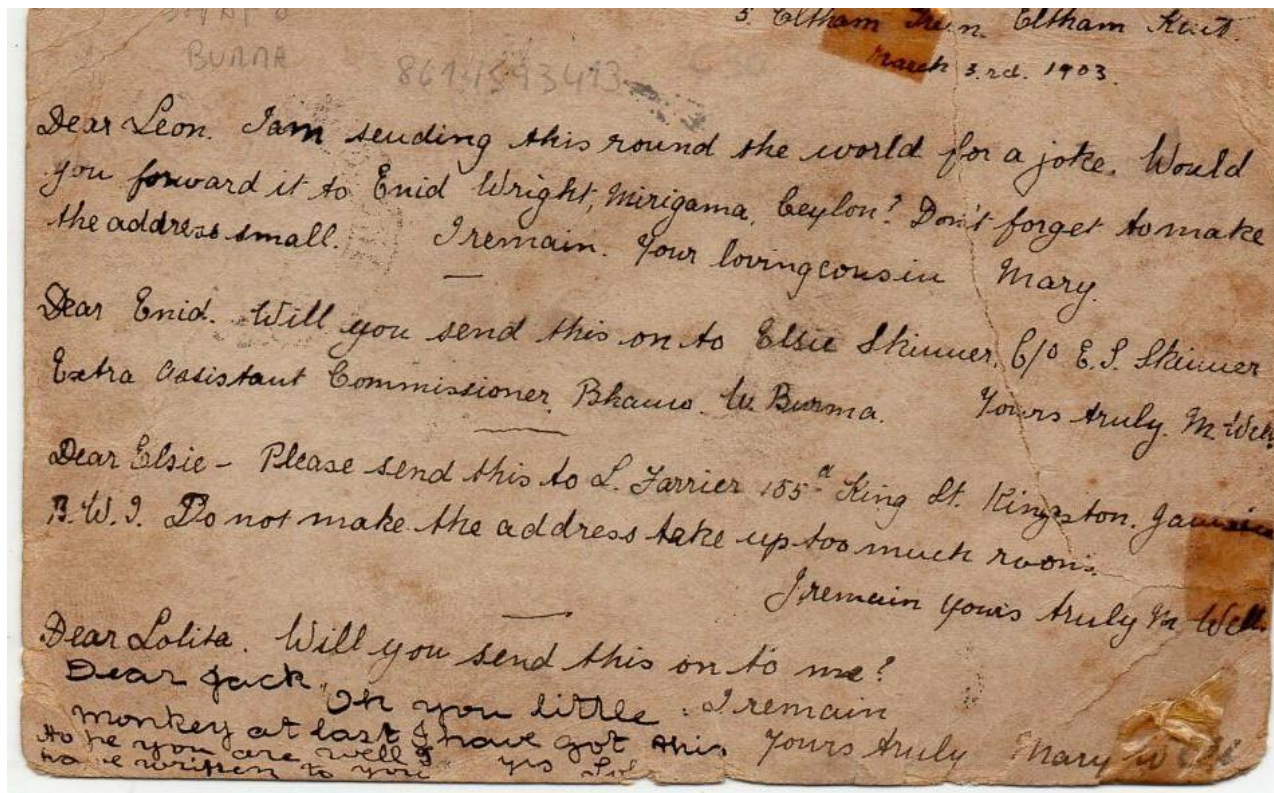 5. Eltham Eltham Kent.
March 3.rd. 1903.
BURMA
Dear Leon. I am sending this round the world for a joke. Would
you forward it to Enid Wright, Mirigama, Ceylon? Don't forget to make
the address small. I remain. Your loving cousin Mary.
Dear Enid. Will you send this on to Elsie Skinner, C/o E.S. Skinner
Extra Assistant Commissioner, Bhamo. U. Burma. Yours truly. M. Well
Dear Elsie - Please send this to L. Farrier 155a King St. Kingston. Jamaica
B.W.I. Do not make the address take up too much room.
I remain yours truly M. Well.
Dear Lolita. Will you send this on to me?
I remain
Yours truly Mary
Dear Jack
Oh you little
monkey at last I have got this
Hope you are well I
have written to you yrs Lol